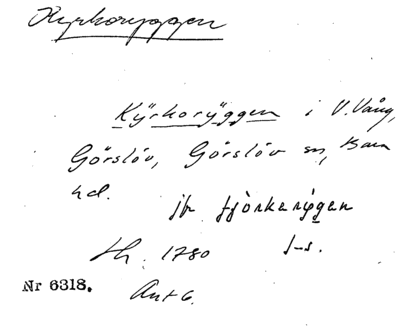 Kyrkoryggen
Kÿrkorÿggen i V. Vång,
Görslöv, Görslöv sn, Bara
hd.
jfr
Ah. 1780 f-s.
Nr 6318.
Ant 6.